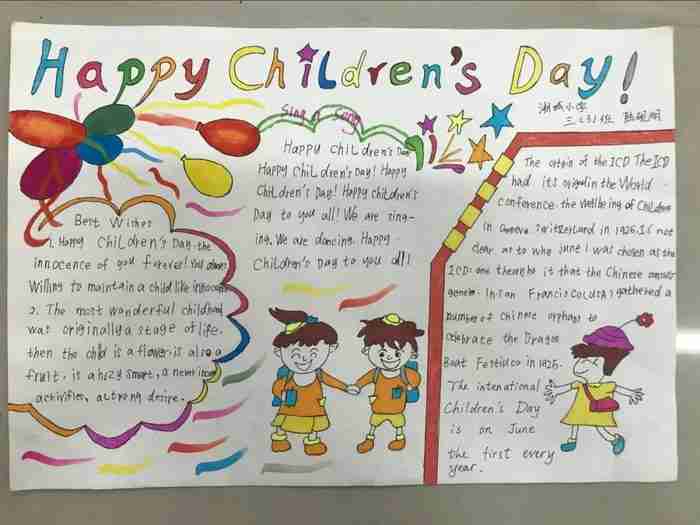 Happy Children's Day!
湖城小学
三(3)班
Sing a Song
Happy children's Day
Happy Children's Day! Happy
Children's Day! Happy children's
Day to you all! We are sing-
ing. We are dancing. Happy
Children's Day to you all!
Best Wishes
1. Happy Children's Day. the
innocence of you forever! You always
Willing to maintain a child like innocence
2. The most wonderful childhood
was originally a stage of life.
then the child is a flower. is also a
fruit. is a hazy smart, a never
activities, a strong desire.
The origin of the ICD The ICD
had its origin in the World
conference. the wellbeing of Children
in Geneva Switzerland in 1925. is not
clear as to why june 1 was chosen as the
ICD: one theory is it that the Chinese
general. in San Francisco (USA) gathered a
number of Chinese orphans to
celebrate the Dragon
Boat Festival in 1925.
The intenational
Children's Day
is on June
the first every
year.